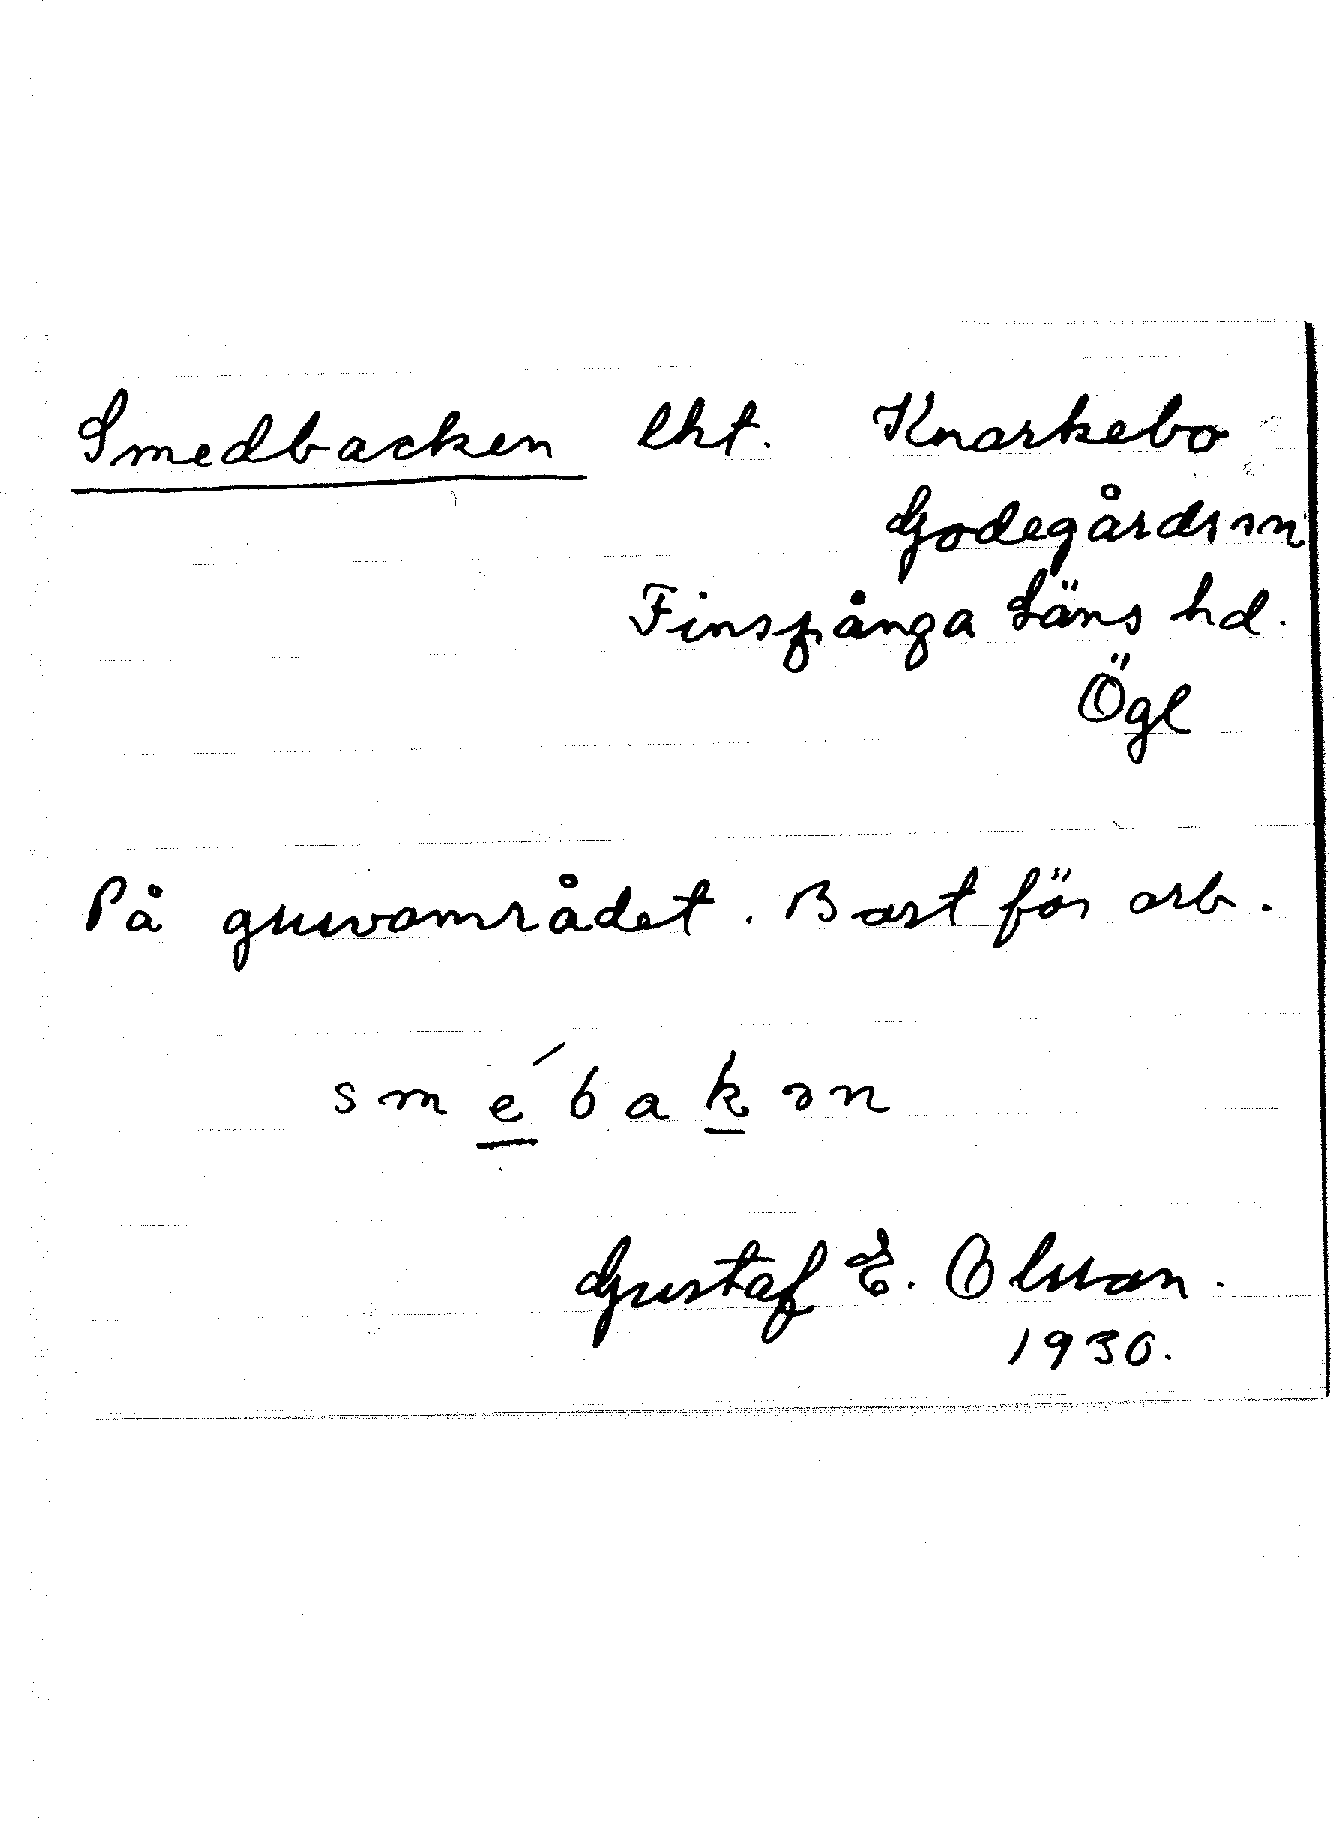 Smedbacken lht. Knarkebo
Godegårds sn
Finspånga Läns hd.
Ögl
På gruvområdet. Bost för arb.
sme´bakən
Gustaf E. Olsson.
1930.